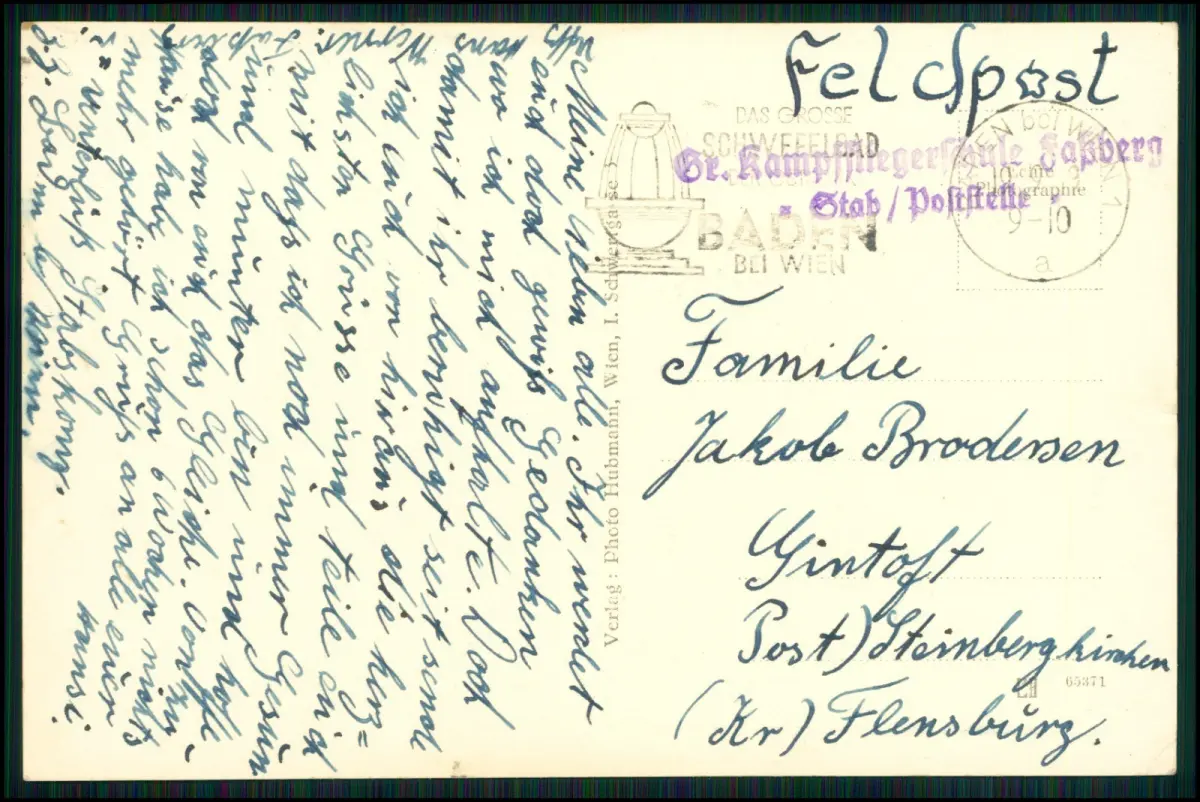 Feldpost
DAS GROSSE
SCHWEFELBAD
BADEN
BEI WIEN
BADEN bei WIEN 1
9-10
a
Gr. Kampffliegerschule Faßberg
- Stab / Poststelle -
Echte
Photographie
Familie
Jakob Brodersen
Gintoft
Post) Steinbergkirchen
(Kr) Flensburg.
65371
Verlag: Photo Hubmann, Wien, I. Schwertgasse
Uffz Hans
Meine lieben alle. Ihr werdet
euch doch gewiß Gedanken
wo ich mich aufhalte. Doch
damit ihr beruhigt seit send
ich euch von hieraus die herz=
lichsten Grüsse und teile euch
mit dass ich noch immer Gesun
und munter bin und hoffe
doch von euch das Gleiche. Von zu
Hause hab ich schon 6 Wochen nichts
mehr gehört. Gruß an alle euer
Hansi.
z.Z.